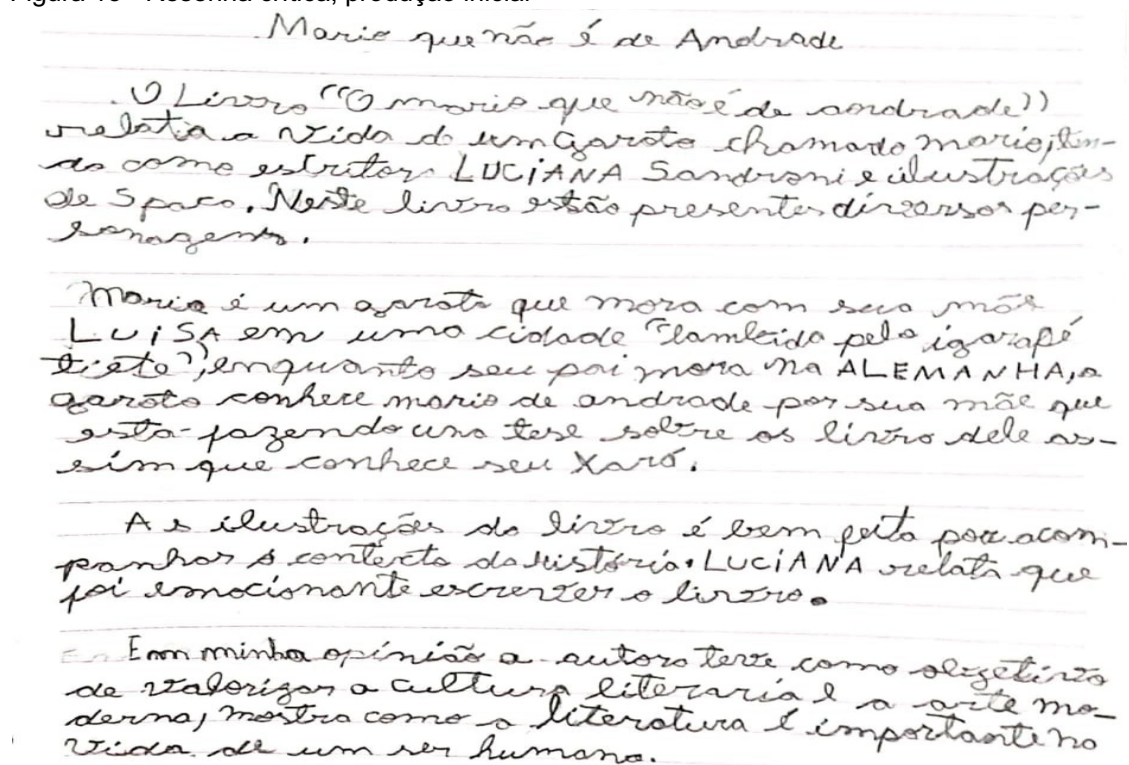 Mario que não é de Andrade
O Livro "O mario que não é de andrade"
relata a vida de um Garoto chamado mario, ten-
do como estritor LUCiANA Sandroni e ilustrações
de Spaco. Neste livro estão presentes diversos per-
sonagens.
Mario é um garoto que mora com sua mãe
LUiSA em uma cidade "lambida pelo igarapé
tiete", enquanto seu pai mora na ALEMANHA, o
garoto conhece mario de andrade por sua mãe que
esta fazendo una tese sobre os livro dele as-
sim que conhece seu Xará.
As ilustrações do livro é bem feita por acom-
panhar o contexto da história. LUCiANA relata que
foi emocionante escrever o livro.
Em minha opinião a autora teve como objetivo
de valorizar a cultura literaria e a arte mo-
derna, mostra como a literatura é importante na
vida de um ser humano.